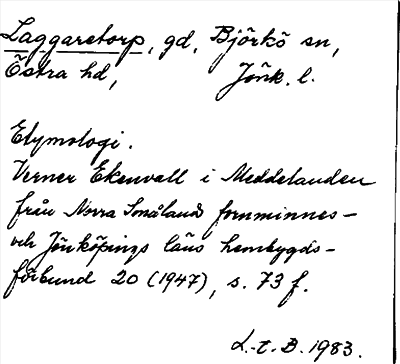 Laggaretorp, gd, Björkö sn,
Östra hd, Jönk. l.
Etymologi.
Verner Ekenvall i Meddelanden
från Norra Smålands fornminnes-
och Jönköpings läns hembygds-
förbund 20 (1947), s. 73 f.
L.-E. B. 1983.